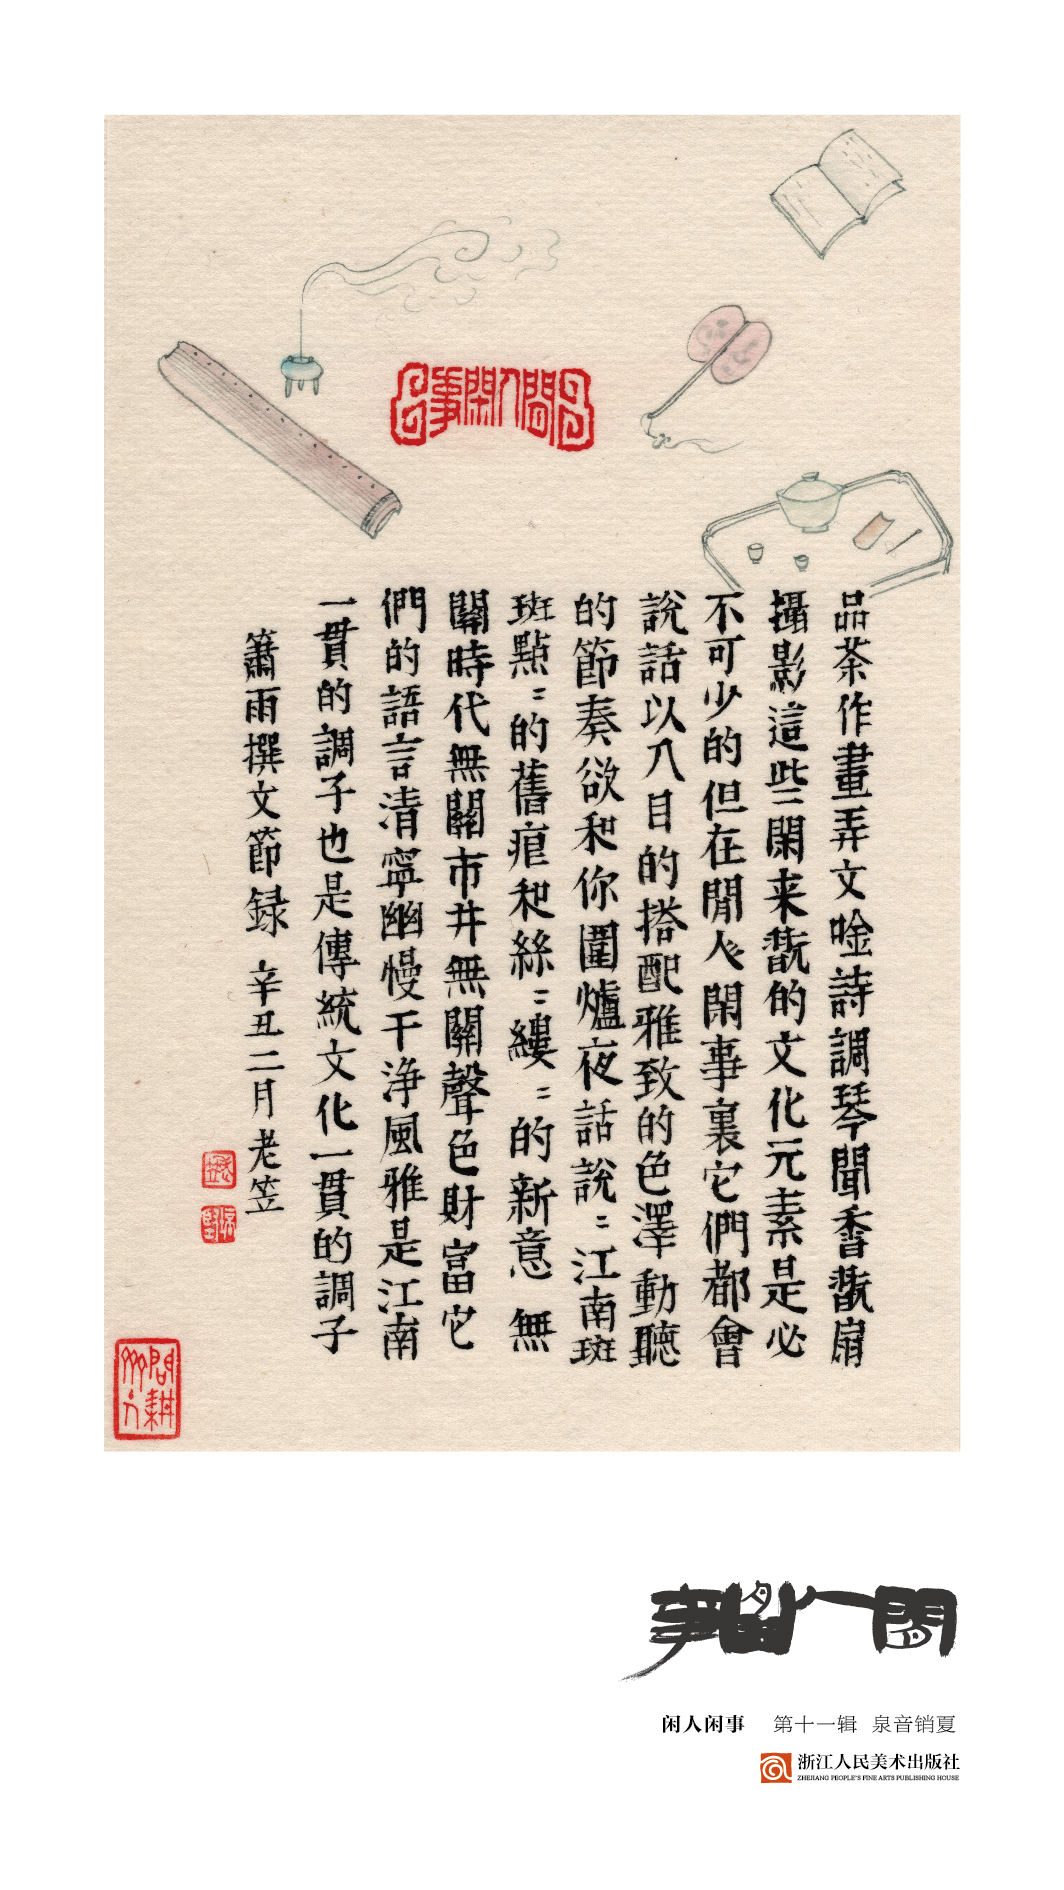 閒人閑事
品茶作畫弄文唫詩調琴聞香翫扇
攝影這些閑来翫的文化元素是必
不可少的但在閒人閑事裏它們都會
說話以入目的搭配雅致的色澤動聽
的節奏欲和你圍爐夜話說〻江南斑
斑點〻的舊痕和絲〻縷〻的新意 無
關時代無關市井無關聲色財富它
們的語言清寧幽慢干净風雅是江南
一貫的調子也是傳統文化一貫的調子
蕭雨撰文節録 辛丑二月老笠
閒人閒事
闲人闲事 第十一辑 泉音销夏
浙江人民美术出版社
ZHEJIANG PEOPLE'S FINE ARTS PUBLISHING HOUSE